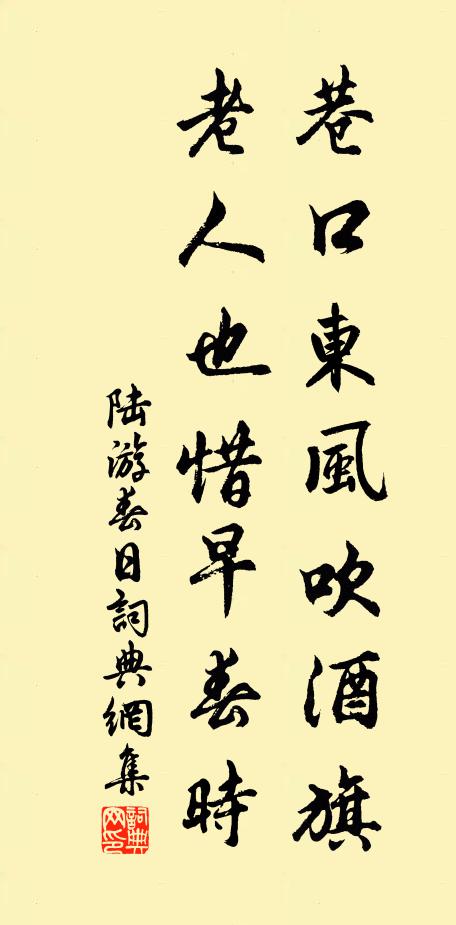 巷口東風吹酒旗
老人也惜早春時
陸游春日詞典網集
詞典網印